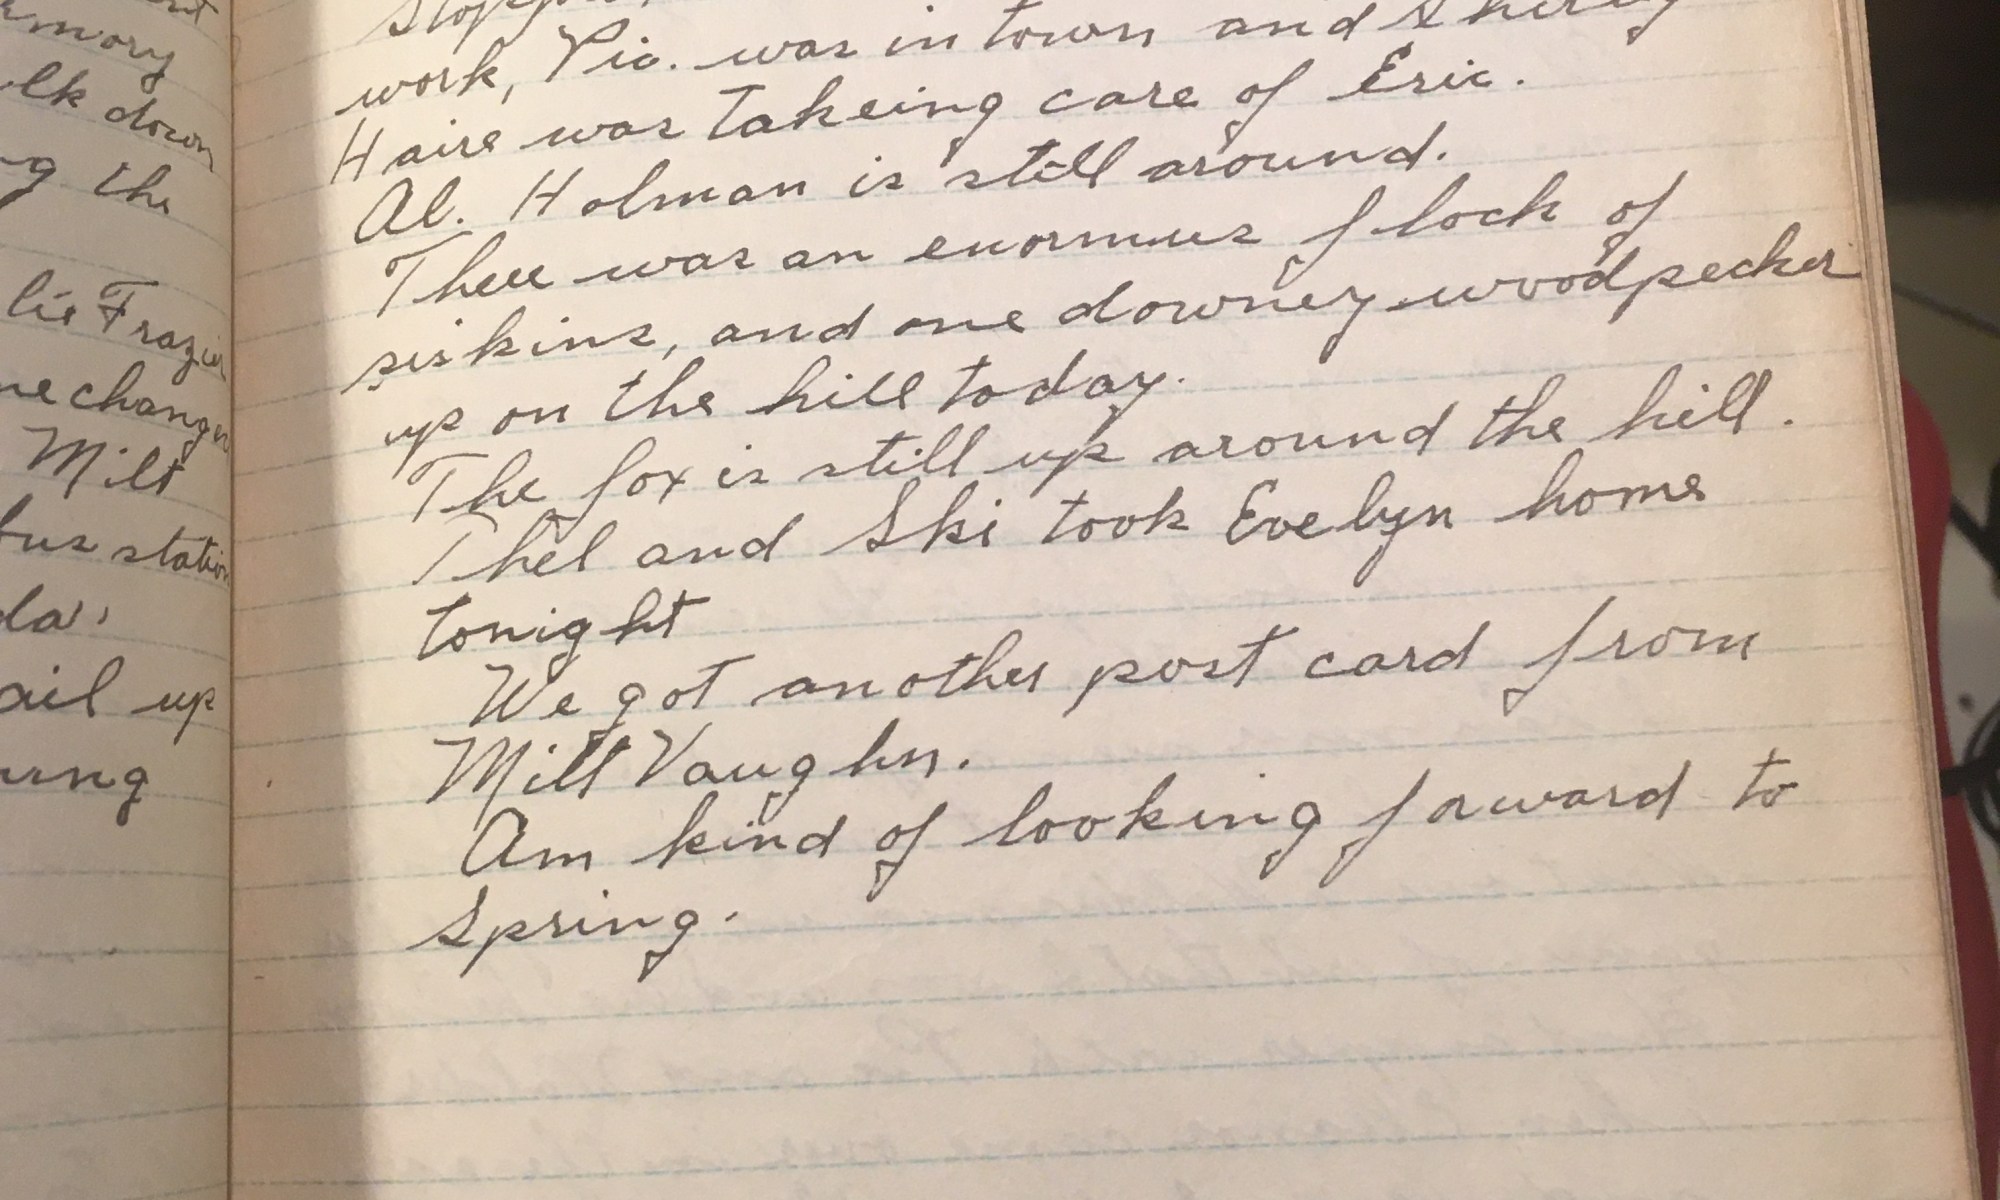 mory
lk down
g the
lie Frazier
me changer
Milt
bus station
ail up
work, Vic. was in town and Shirley
Haire was takeing care of Eric.
Al. Holman is still around.
There was an enormus flock of
siskins, and one downey woodpecker
up on the hill today.
The fox is still up around the hill.
Thel and Ski took Evelyn home
tonight
We got another post card from
Milt Vaughn.
Am kind of looking forward to
Spring.